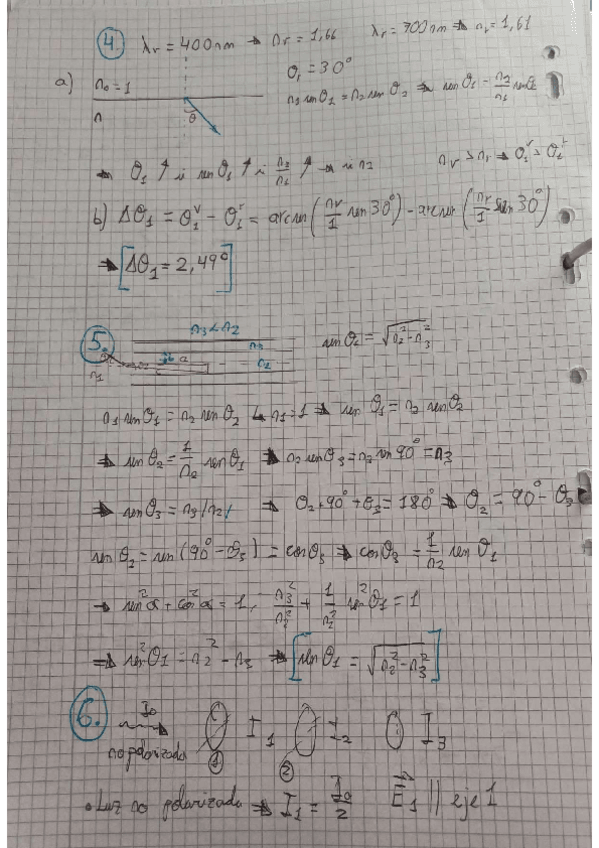 4. λr = 400nm → nr = 1,66   λr = 700nm → nr = 1,61
a) n0 = 1   θ1 = 30°
n   θ   n1 senθ1 = n2 senθ2 → senθ1 = n2/n1 senθ2
→ θ1 ↑ si senθ1 ↑ si n2/n1 ↑ → si n2   nv > nr → θ1^v > θ1^r
b) Δθ1 = θ1^v - θ1^r = arcsen(nv/1 sen30°) - arcsen(nr/1 sen30°)
→ [Δθ1 = 2,49°]
5. n3 < n2   senθ2 = √(n2² - n3²)
n3
n2
n1
n1 senθ1 = n2 senθ2 ↳ n1 = 1 → senθ1 = n2 senθ2
→ senθ2 = 1/n2 senθ1 → n2 senθ3 = n3 sen90° = n3
→ senθ3 = n3/n2 → θ2 + 90° + θ3 = 180° → θ2 = 90° - θ3
senθ2 = sen(90° - θ3) = cosθ3 → cosθ3 = 1/n2 senθ1
→ sen²α + cos²α = 1, n3²/n2² + 1/n2² sen²θ1 = 1
→ sen²θ1 = n2² - n3 → [senθ1 = √(n2² - n3²)]
6. I0   I1   I2   I3
no polarizada   1   2
• Luz no polarizada → I1 = I0/2   E1 || eje 1